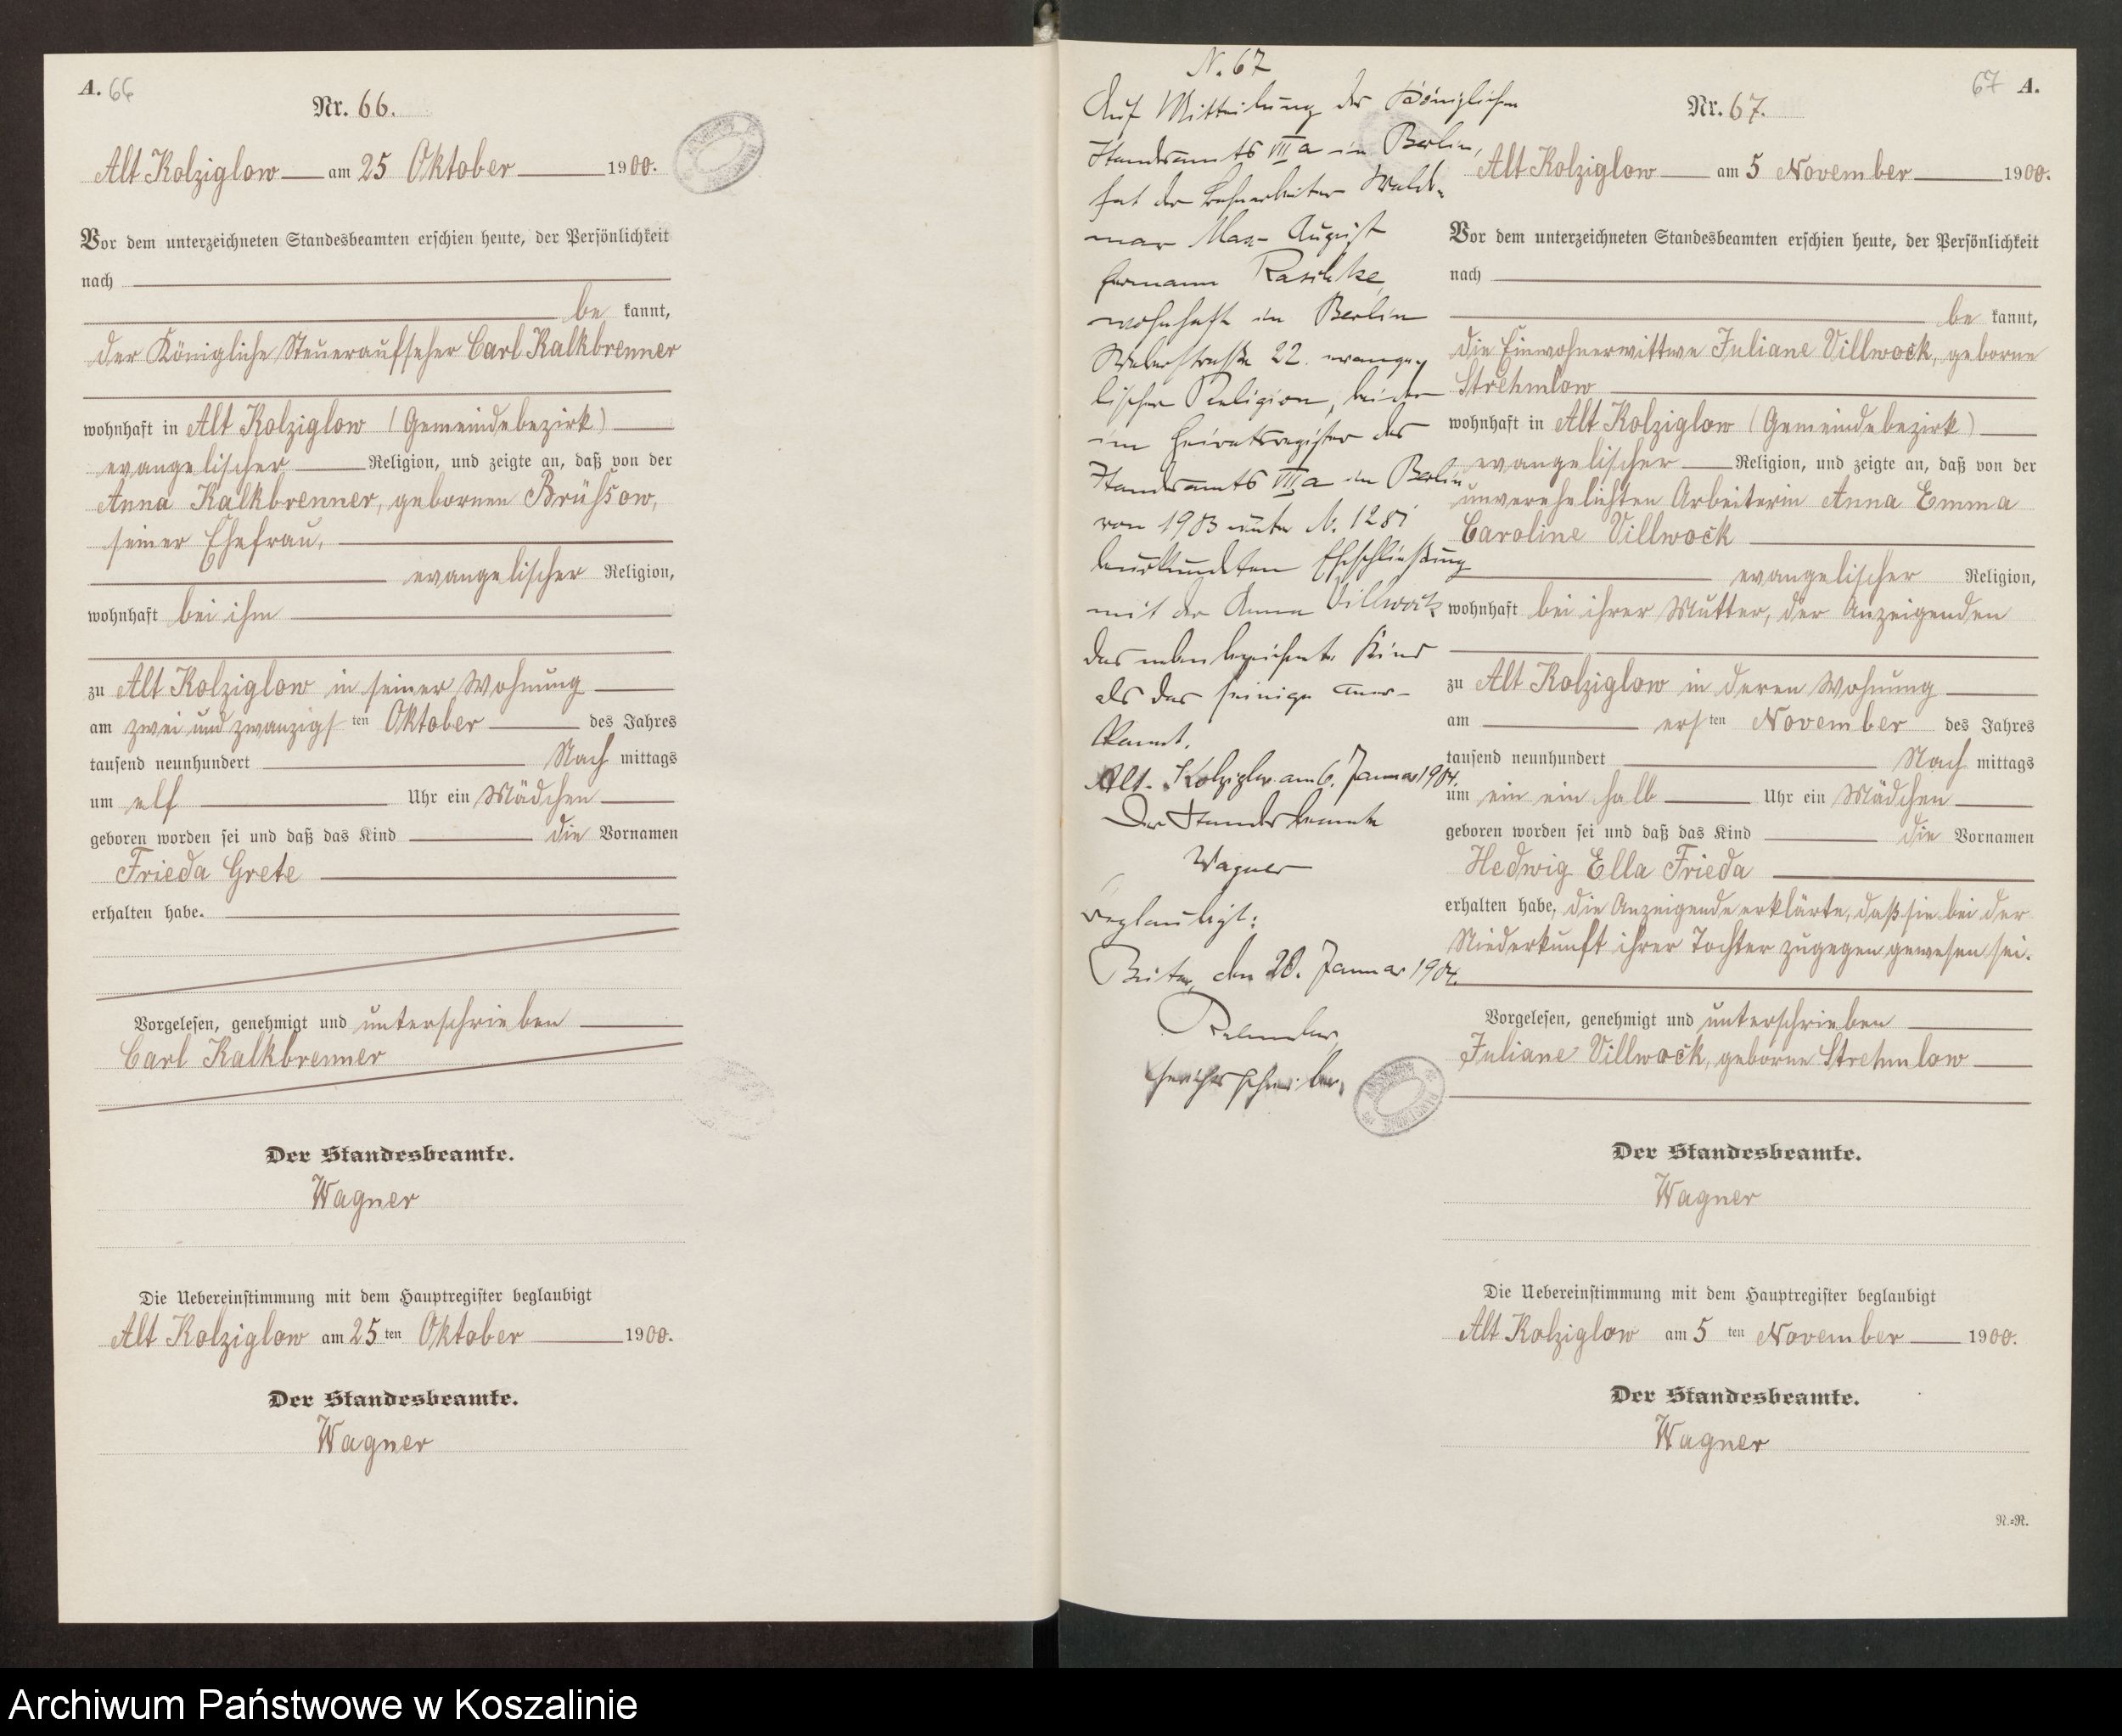 A. 66
Nr. 66.
Alt Kolziglow am 25 Oktober 1900.
Vor dem unterzeichneten Standesbeamten erschien heute, der Persönlichkeit
nach
be kannt,
der Königliche Steueraufseher Carl Kalkbrenner
wohnhaft in Alt Kolziglow (Gemeindebezirk)
evangelischer Religion, und zeigte an, daß von der
Anna Kalkbrenner, gebornen Brüssow,
seiner Ehefrau,
evangelischer Religion,
wohnhaft bei ihm
zu Alt Kolziglow in seiner Wohnung
am zwei und zwanzigsten Oktober des Jahres
tausend neunhundert Nach mittags
um elf Uhr ein Mädchen
geboren worden sei und daß das Kind die Vornamen
Frieda Grete
erhalten habe.
Vorgelesen, genehmigt und unterschrieben
Carl Kalkbrenner
Der Standesbeamte.
Wagner
Die Uebereinstimmung mit dem Hauptregister beglaubigt
Alt Kolziglow am 25 ten Oktober 1900.
Der Standesbeamte.
Wagner
N. 67
Auf Mitteilung des Königlichen
Standesamts VII a in Berlin,
hat der Bohrarbeiter Walde-
mar Max August
Hermann Raschke,
wohnhaft in Berlin
Weberstraße 22. evange-
lischer Religion, bei der
im Heiratsregister des
Standesamts VII a in Berlin
von 1903 unter N. 1281
beurkundeten Eheschließung
mit der Anna Villwock
das nebenbezeichnete Kind
als das seinige aner-
kannt.
Alt-Kolziglow am 6. Januar 1904.
Der Standesbeamte
Wagner
Beglaubigt:
den 20. Januar 1904.
Gerichtsschreiber.
67 A.
Nr. 67.
Alt Kolziglow am 5 November 1900.
Vor dem unterzeichneten Standesbeamten erschien heute, der Persönlichkeit
nach
be kannt,
die Einwohnerwittwe Juliane Villwock, geborne
Strehmlow
wohnhaft in Alt Kolziglow (Gemeindebezirk)
evangelischer Religion, und zeigte an, daß von der
unverehelichten Arbeiterin Anna Emma
Caroline Villwock
evangelischer Religion,
wohnhaft bei ihrer Mutter, der Anzeigenden
zu Alt Kolziglow in deren Wohnung
am ersten November des Jahres
tausend neunhundert Nach mittags
um ein ein halb Uhr ein Mädchen
geboren worden sei und daß das Kind die Vornamen
Hedwig Ella Frieda
erhalten habe, die Anzeigende erklärte, daß sie bei der
Niederkunft ihrer Tochter zugegen gewesen sei.
Vorgelesen, genehmigt und unterschrieben
Juliane Villwock, geborne Strehmlow
Der Standesbeamte.
Wagner
Die Uebereinstimmung mit dem Hauptregister beglaubigt
Alt Kolziglow am 5 ten November 1900.
Der Standesbeamte.
Wagner
N.=R.
Archiwum Państwowe w Koszalinie